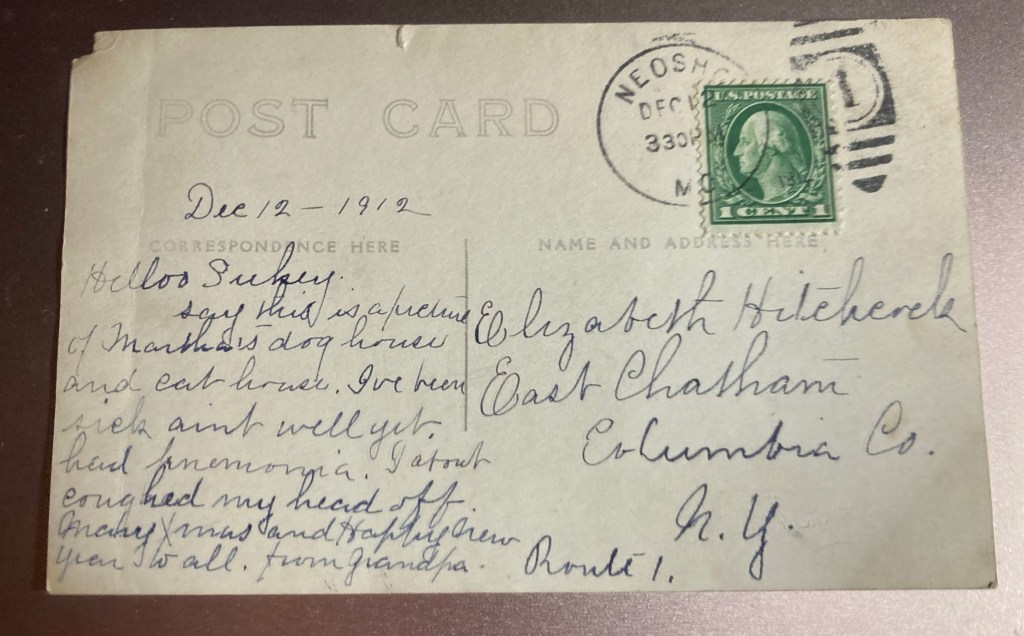 POST CARD
NEOSHO
DEC 12
330 PM
MO.
1
U.S. POSTAGE
1 CENT 1
Dec 12 - 1912
CORRESPONDENCE HERE
NAME AND ADDRESS HERE
Helloo Sukey.
say this is a picture
of Martha's dog house
and cat house. I've been
sick aint well yet.
had pnemonia. I about
coughed my head off.
Many Xmas and Happy New
Year to all. from Grandpa.
Elizabeth Hitchcock
East Chatham
Columbia Co.
N. Y.
Route 1.